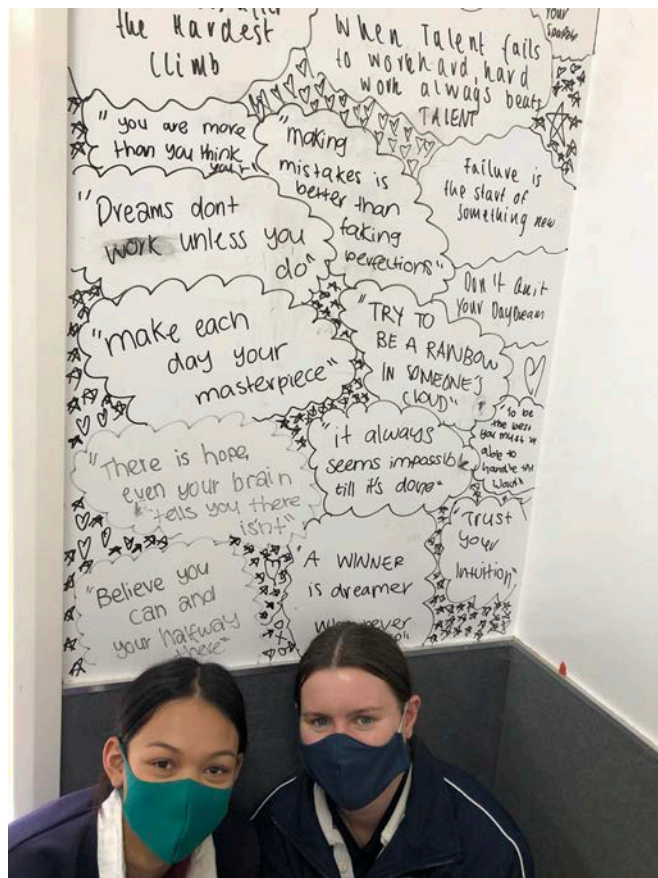 the Hardest
Climb
When Talent fails
to work hard, hard
work always beats
TALENT
Your
Sparkle
"you are more
than you think
"making
mistakes is
better than
faking
perfections"
Failure is
the start of
something new
"Dreams dont
work unless you
do"
Don't Quit
Your DayDream
"make each
day your
masterpiece"
"TRY TO
BE A RAINBOW
IN SOMEONE'S
CLOUD"
"To be
the best
you must be
able to
handle the
Worst"
"There is hope,
even your brain
tells you there
isnt"
"it always
seems impossible
till it's done"
"Trust
your
Intuition"
"Believe you
can and
your halfway
there"
"A WINNER
is dreamer